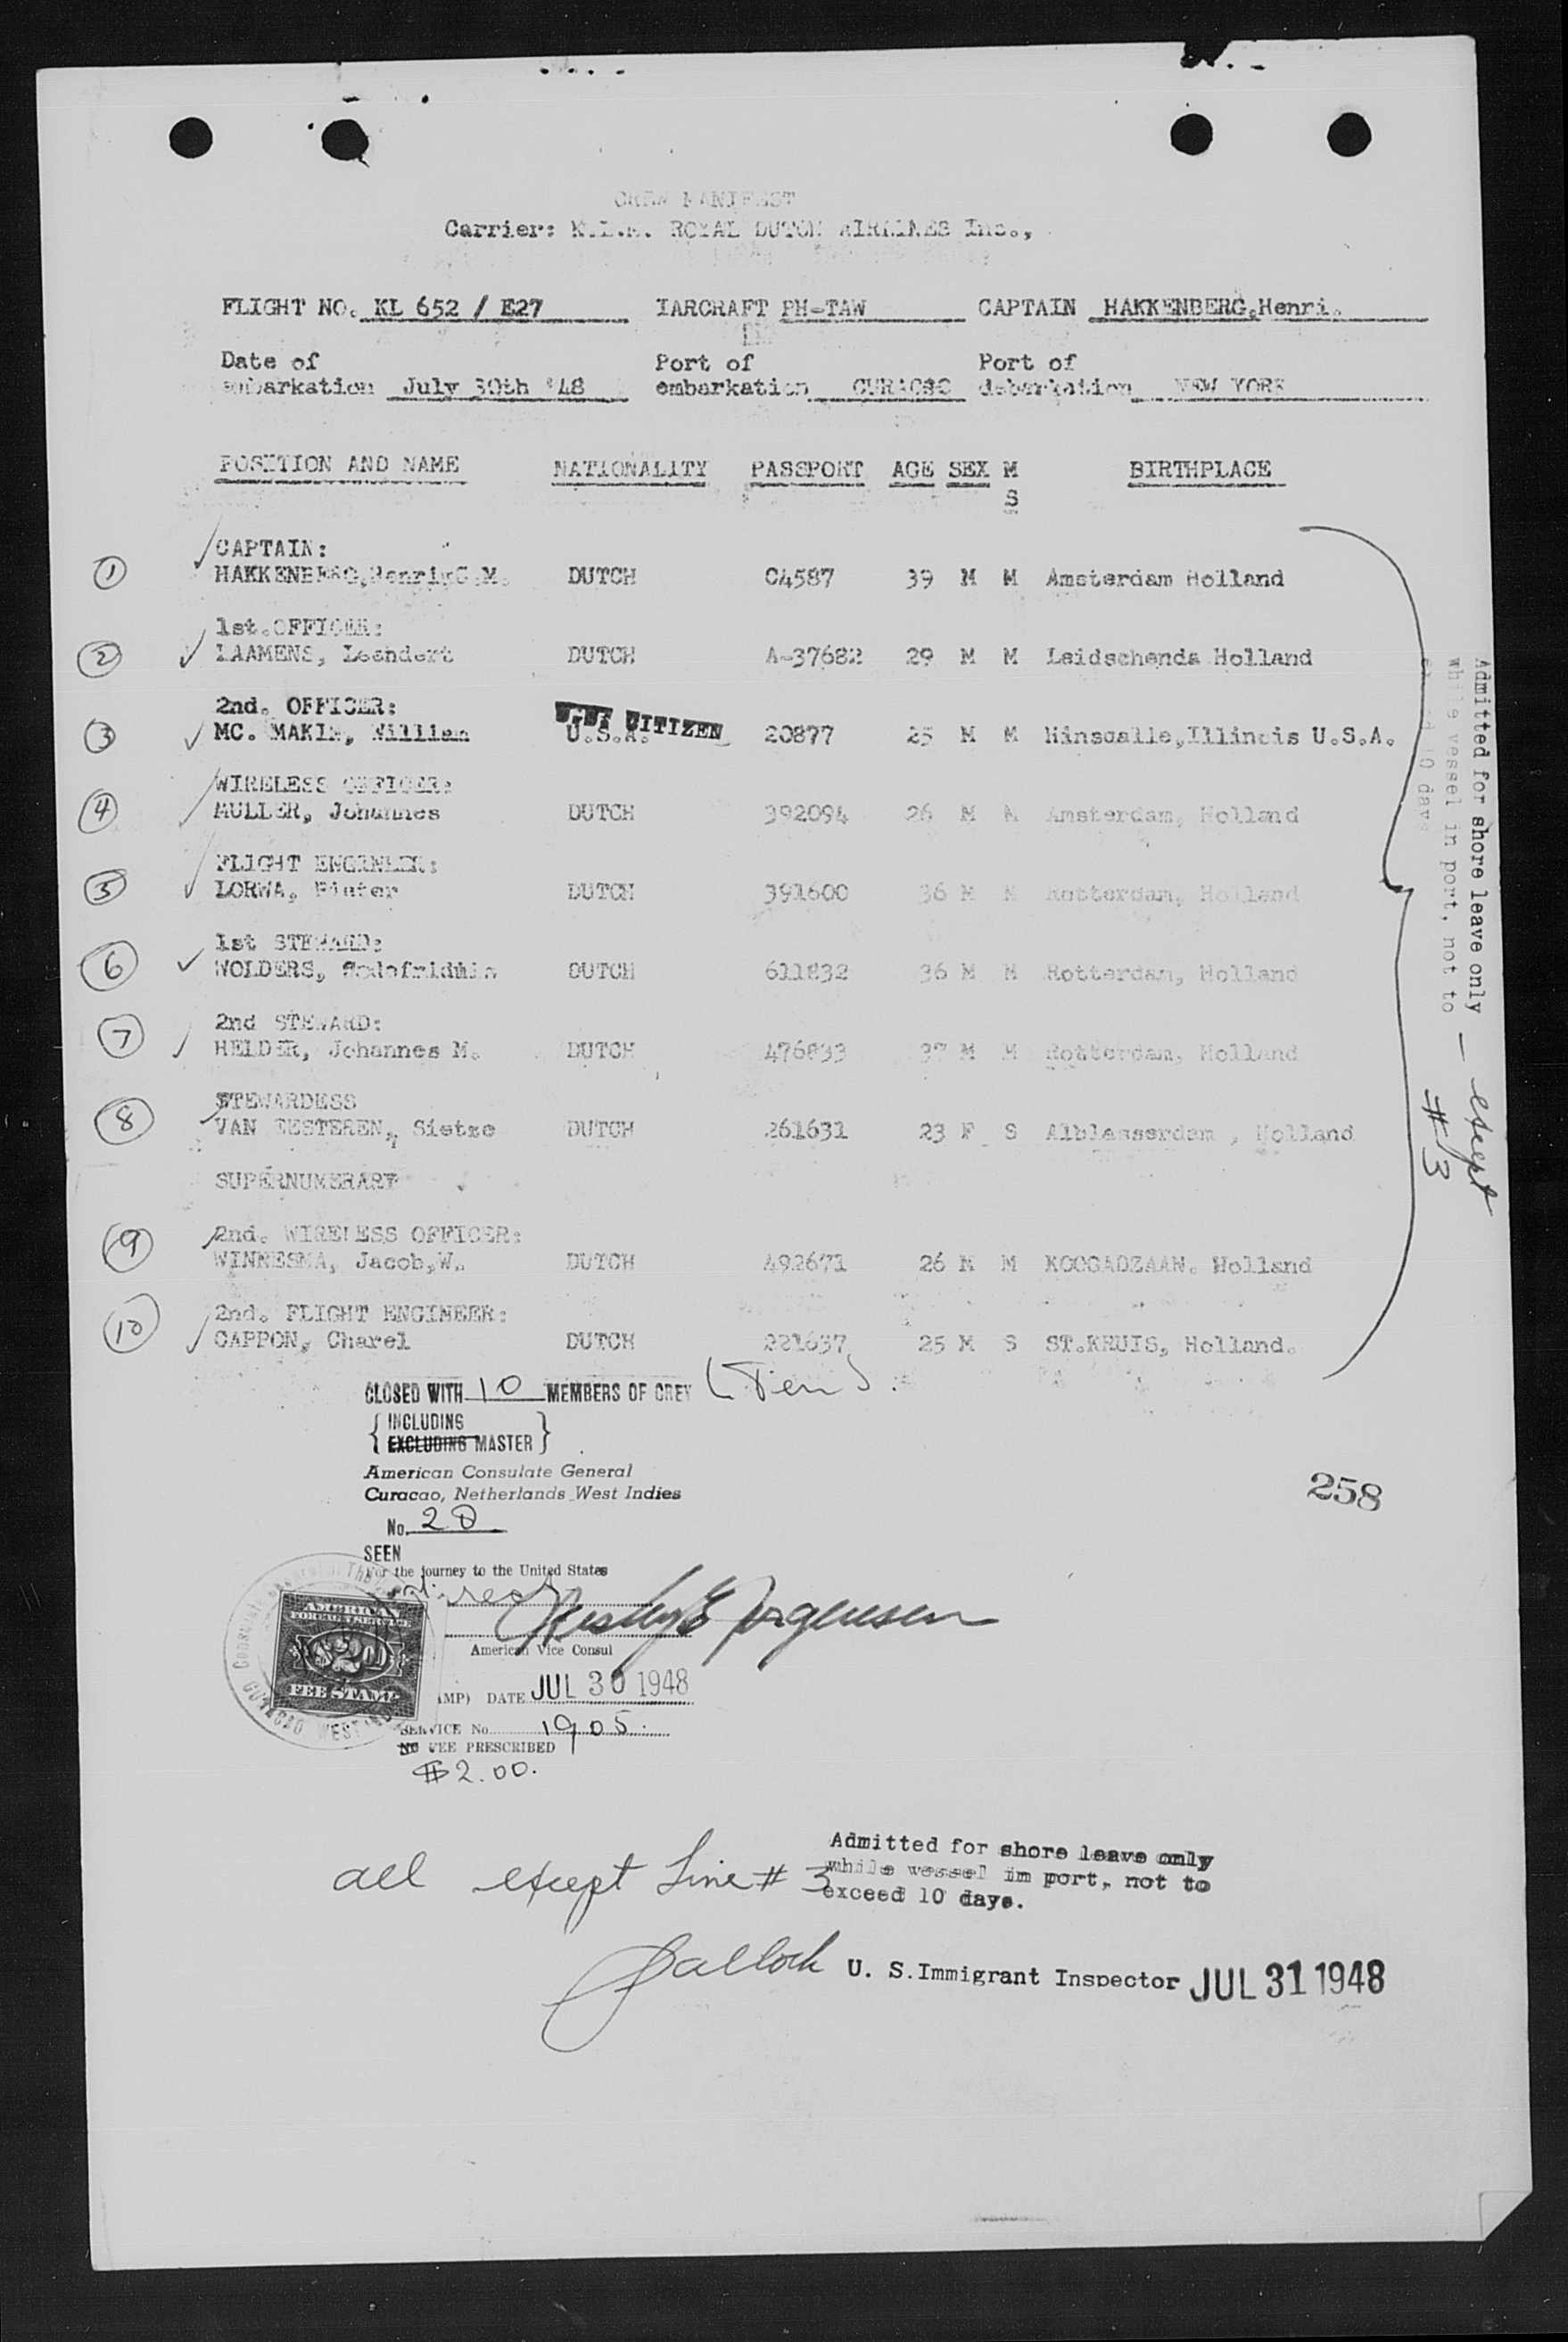 CREW MANIFEST
Carrier: K.L.M. ROYAL DUTCH AIRLINES Inc.,
FLIGHT NO. KL 652 / E27 IARCRAFT PH-TAW CAPTAIN HAKKENBERG,Henri.
Date of Port of Port of
embarkation July 30th '48 embarkation CURACAO debarkation NEW YORK
POSITION AND NAME NATIONALITY PASSPORT AGE SEX M BIRTHPLACE
S
CAPTAIN:
1 HAKKENBERG,Henri,C.M. DUTCH C4587 39 M M Amsterdam Holland
1st.OFFICER:
2 LAAMENS, Leendert DUTCH A-37682 29 M M Leidschenda Holland
2nd. OFFICER:
3 MC. MAKIN, William U.S.A. CITIZEN 20877 25 M M Hinsdalle,Illinois U.S.A.
WIRELESS OFFICER:
4 MULLER, Johannes DUTCH 392094 26 M M Amsterdam, Holland
FLIGHT ENGINEER:
5 LORWA, Pieter DUTCH 391600 36 M M Rotterdam, Holland
1st STEWARD:
6 WOLDERS, DUTCH 611832 36 M M Rotterdam, Holland
2nd STEWARD:
7 HELDER, Johannes M. DUTCH 476833 37 M M Rotterdam, Holland
STEWARDESS
8 VAN EESTEREN, Sietze DUTCH 261631 23 F S Alblasserdam , Holland
SUPERNUMERARY
2nd. WIRELESS OFFICER:
9 Jacob,W. DUTCH 492671 26 M M KOOGADZAAN. Holland
2nd. FLIGHT ENGINEER:
10 CAPPON, Charel DUTCH 221637 25 M S ST.KRUIS, Holland.
Admitted for shore leave only — except
while vessel in port, not to # 3
exceed 10 days
CLOSED WITH 10 MEMBERS OF CREW (Ten).
INCLUDING
EXCLUDING MASTER
American Consulate General
Curacao, Netherlands West Indies
No. 20
SEEN
For the journey to the United States
direct
Jorgensen
American Vice Consul
AMERICAN
FOREIGN SERVICE
FEE STAMP
CURACAO WEST
(AMP) DATE JUL 30 1948
SERVICE No. 1905.
NO FEE PRESCRIBED
$2.00.
258
all except Line # 3
Admitted for shore leave only
while vessel in port, not to
exceed 10 days.
U. S.Immigrant Inspector JUL 31 1948